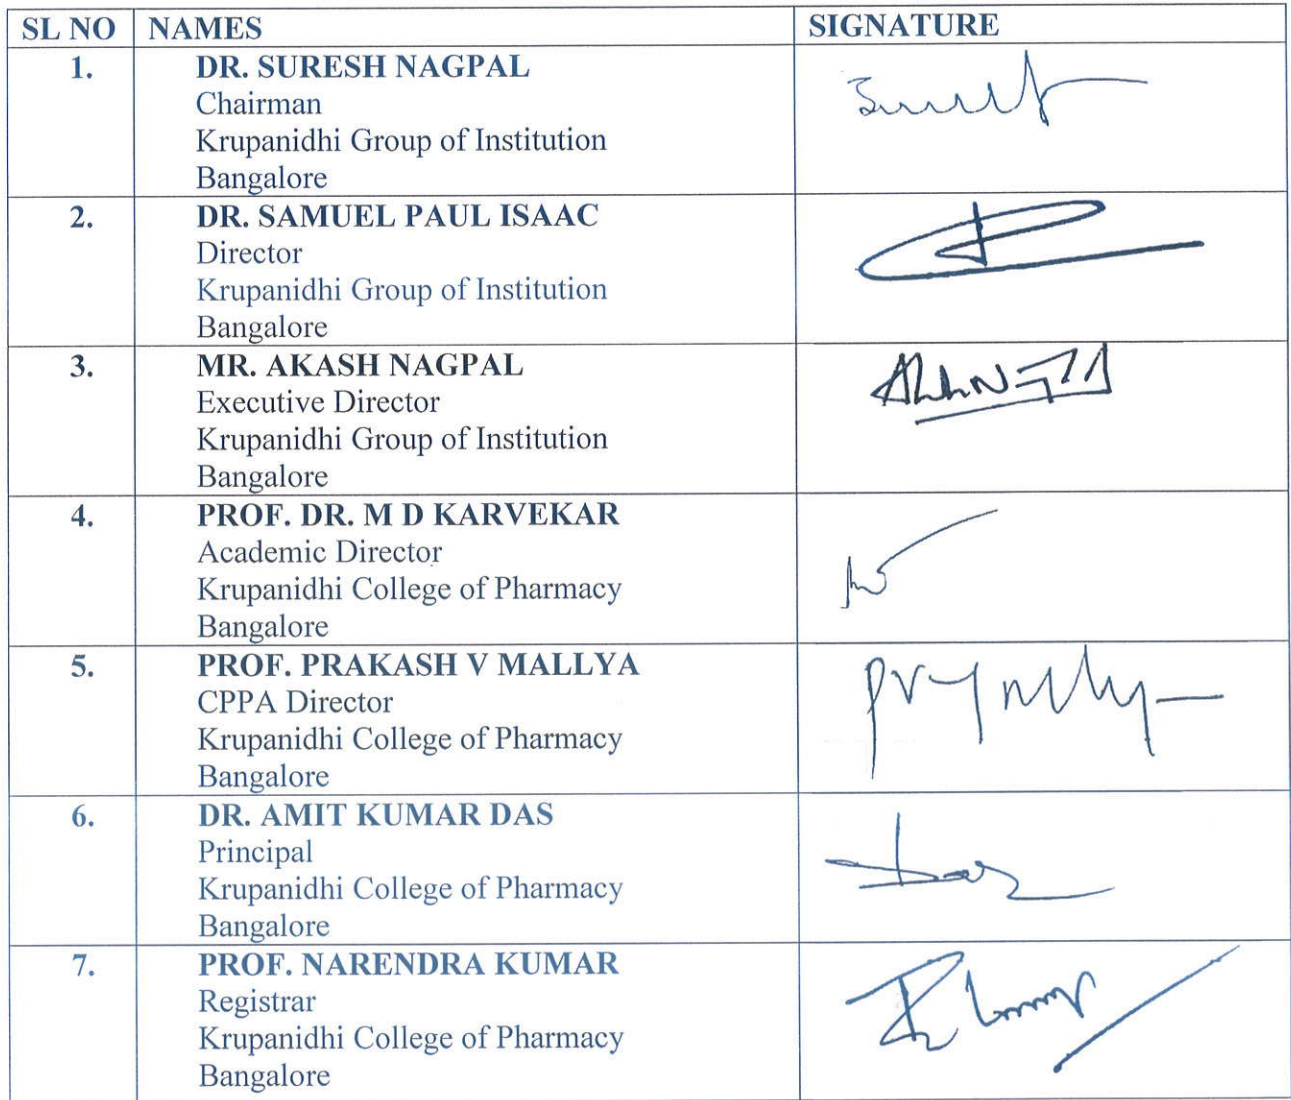 SL NO NAMES SIGNATURE
1. DR. SURESH NAGPAL
Chairman
Krupanidhi Group of Institution
Bangalore
2. DR. SAMUEL PAUL ISAAC
Director
Krupanidhi Group of Institution
Bangalore
3. MR. AKASH NAGPAL
Executive Director
Krupanidhi Group of Institution
Bangalore
4. PROF. DR. M D KARVEKAR
Academic Director
Krupanidhi College of Pharmacy
Bangalore
5. PROF. PRAKASH V MALLYA
CPPA Director
Krupanidhi College of Pharmacy
Bangalore
6. DR. AMIT KUMAR DAS
Principal
Krupanidhi College of Pharmacy
Bangalore
7. PROF. NARENDRA KUMAR
Registrar
Krupanidhi College of Pharmacy
Bangalore